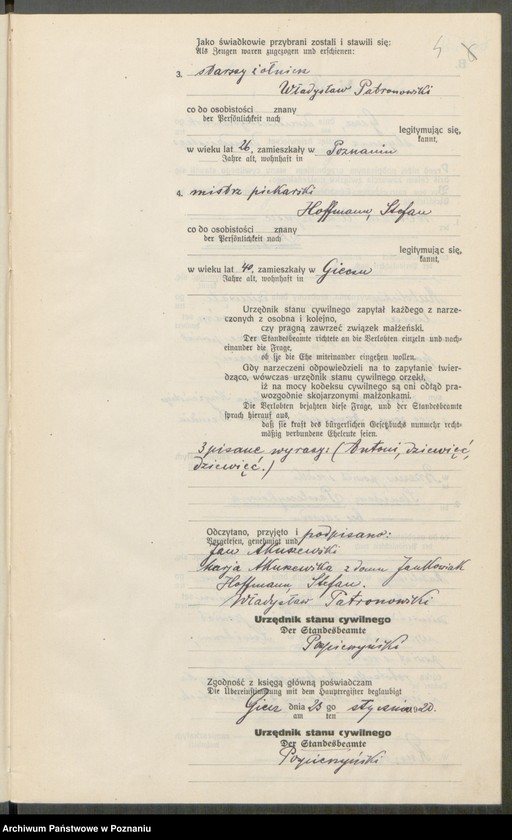 Jako świadkowie przybrani zostali i stawili się:
Als Zeugen waren zugezogen und erschienen:
3. starszy żołnierz
Władysław Patronowski
co do osobistości znany
der Persönlichkeit nach
legitymując się,
kannt,
w wieku lat 26, zamieszkały w Poznaniu
Jahre alt, wohnhaft in
4. mistrz piekarski
Hoffmann, Stefan
co do osobistości znany
der Persönlichkeit nach
legitymując się,
kannt,
w wieku lat 40, zamieszkały w Gieczu
Jahre alt, wohnhaft in
Urzędnik stanu cywilnego zapytał każdego z narze-
czonych z osobna i kolejno,
czy pragną zawrzeć związek małżeński.
Der Standesbeamte richtete an die Verlobten einzeln und nach-
einander die Frage,
ob sie die Ehe miteinander eingehen wollen.
Gdy narzeczeni odpowiedzieli na to zapytanie twier-
dząco, wówczas urzędnik stanu cywilnego orzekł,
iż na mocy kodeksu cywilnego są oni odtąd pra-
wozgodnie skojarzonymi małżonkami.
Die Verlobten bejahten diese Frage, und der Standesbeamte
sprach hierauf aus,
daß sie kraft des bürgerlichen Gesetzbuchs nunmehr recht-
mäßig verbundene Eheleute seien.
3 pisane wyrazy: (Antoni, dziewięć,
dziewięć.)
Odczytano, przyjęto i podpisano:
Vorgelesen, genehmigt und
Jan
z domu Jankowiak
Hoffmann, Stefan.
Władysław Patronowski
Urzędnik stanu cywilnego
Der Standesbeamte
Zgodność z księgą główną poświadczam
Die Übereinstimmung mit dem Hauptregister beglaubigt
Giecz dnia 23 go stycznia 1920.
am ten
Urzędnik stanu cywilnego
Der Standesbeamte
Archiwum Państwowe w Poznaniu